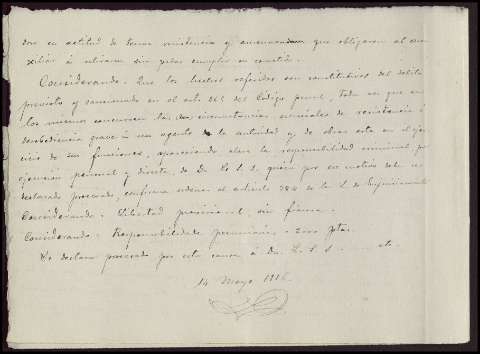 dose en actitud de tenaz resistencia y amenazadora que obligaron al au-
xiliar á retirarse sin poder cumplir su cometido.
Considerando: Que los hechos referidos son constitutivos del delito
previsto y sancionado en el art. del Código penal, toda vez que en
los mismos concurren las circunstancias esenciales de resistencia ó
desobediencia grave á un agente de la autoridad y de obrar este en el ejer-
cicio de sus funciones, apareciendo clara la responsabilidad criminal por
ejecución personal y directa, de D. L. S. quien por su motivo debe ser
declarado procesado, conforme ordena el artículo 384 de la L. de Enjuiciamiento
Considerando: Libertad provisional, sin fianza.
Considerando: Responsabilidades pecuniarias - 2000 ptas.
Se declara procesado por esta causa á Dn. L. S. etc.
14 Mayo 1916